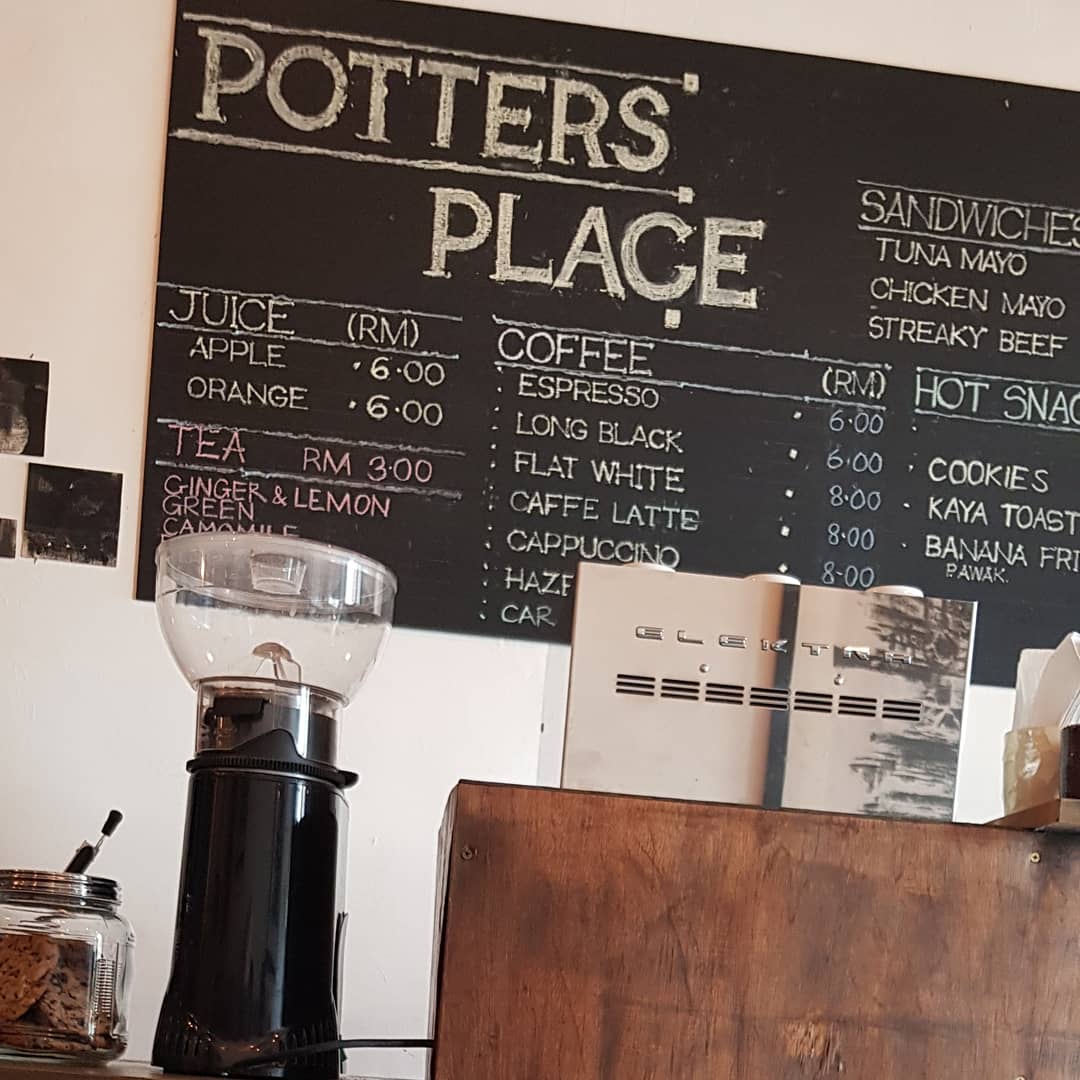 POTTERS
PLACE
JUICE (RM)
APPLE 6.00
ORANGE 6.00
TEA RM 3.00
GINGER & LEMON
GREEN
CAMOMILE
COFFEE (RM)
ESPRESSO 6.00
LONG BLACK 6.00
FLAT WHITE 8.00
CAFFE LATTE 8.00
CAPPUCCINO 8.00
HAZE
CAR
SANDWICHES
TUNA MAYO
CHICKEN MAYO
STREAKY BEEF
HOT SNAC
COOKIES
KAYA TOAST
BANANA FRI
PAWAK.
ELEKTRA